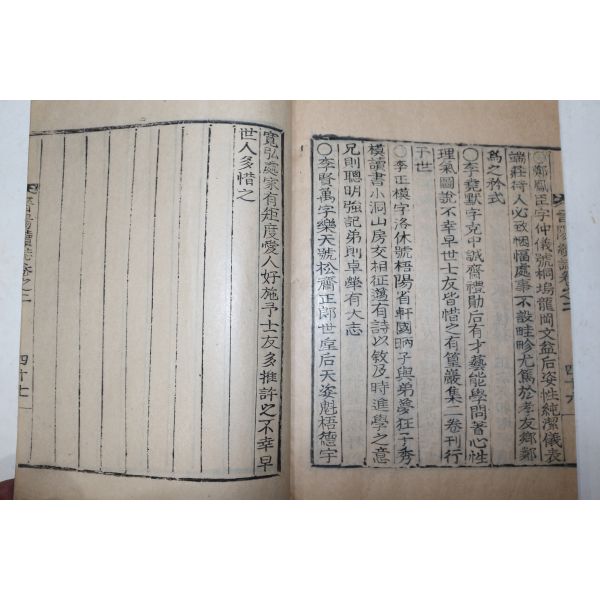 ○鄭鳳臣字仲儀號桐塢龍岡文益后姿性純潔儀表
端莊待人必致悃愊處事不設畦畛尤篤於孝友鄉鄰
爲之矜式
○李堯默字克中誠齋禮勛后有才藝能學問著心性
理氣圖說不幸早世士友皆惜之有篁巖集二卷刊行
于世
○李正模字洛休號梧陽省軒國昞子與弟夢狂子秀
模讀書小洞山房交相征邁有詩以敘及時進學之意
兄則聰明強記弟則卓犖有大志
○李賢萬字樂天號松齋正郞世皇后天姿魁梧德宇
四十六
寬弘處家有矩度愛人好施予士友多推許之不幸早
世人多惜之
四十七